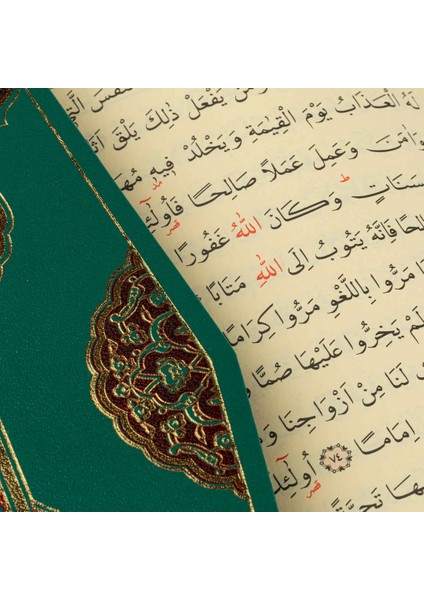 يَفْعَلْ ذٰلِكَ يَلْقَ
لَهُ الْعَذَابُ يَوْمَ الْقِيٰمَةِ وَيَخْلُدْ فِيهِ
وَاٰمَنَ وَعَمِلَ عَمَلًا صَالِحًا
وَكَانَ اللّٰهُ غَفُورًا
فَاِنَّهُ يَتُوبُ اِلَى اللّٰهِ مَتَابًا
مَرُّوا بِاللَّغْوِ مَرُّوا كِرَامًا
لَمْ يَخِرُّوا عَلَيْهَا صُمًّا
لَنَا مِنْ اَزْوَاجِنَا وَ
اِمَامًا ٧٤ اُولٰٓئِكَ
تَحِيَّةً